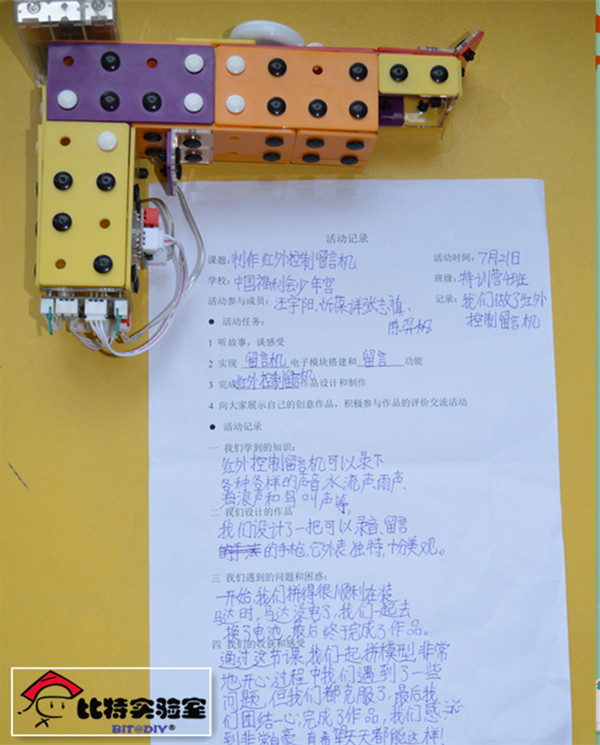 活动记录
课题:制作红外控制留言机
活动时间:7月21日
学校:中国福利会少年宫
班级:特训营4班
活动参与成员:汪宇阳、忻葆洋、张志禛、
陈羿彬
记录:我们做了红外
控制留言机
● 活动任务:
1 听故事,谈感受
2 实现 留言机 电子模块搭建和 留言 功能
3 完成红外控制留言机作品设计和制作
4 向大家展示自己的创意作品,积极参与作品的评价交流活动
● 活动记录
一 我们学到的知识:
红外控制留言机可以录下
各种各样的声音,水流声、雨声、
海浪声和鸟叫声等。
二 我们设计的作品
我们设计了一把可以录音、留言
的手枪,它外表独特,十分美观。
三 我们遇到的问题和困惑:
一开始,我们拼得很顺利,在装
马达时,马达没电了,我们一起去
换了电池,最后终于完成了作品。
四 我们的收获和感受
通过这节课,我们一起拼模型,非常
地开心,过程中我们遇到了一些
问题,但我们都克服了,最后我
们团结一心,完成了作品,我们感
到非常自豪,真希望天天都能这样!
比特实验室
BIT@DIY®